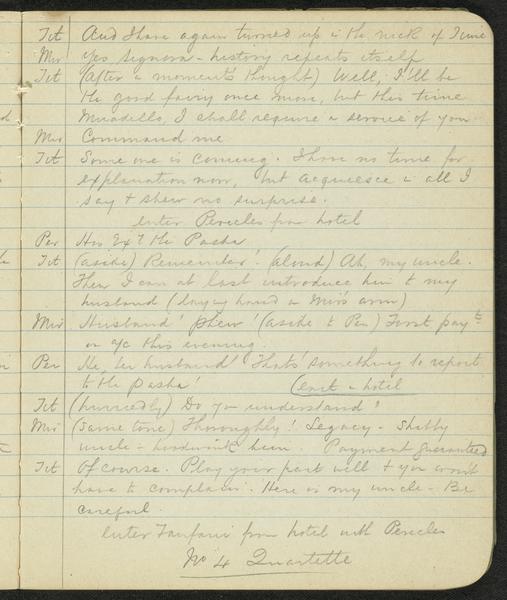 Tit And I have again turned up in the nick of time
Mir Yes Signora - history repeats itself
Tit (after a moment's thought) Well, I'll be
the good fairy once more, but this time
Miradello, I shall require a service of you
Mir Command me
Tit Some one is coming. I have no time for
explanation now, but acquiesce in all I
say & shew no surprise.
enter Pericles from hotel
Per His Exy the Pasha
Tit (aside) Remember! (aloud) Ah, my uncle.
Then I can at last introduce him to my
husband (laying hand on Mir's arm)
Mir Husband! Phew! (aside to Per) First payt
on a/c this evening.
Per He, her husband! That's something to report
to the Pasha! (exit - hotel
Tit (hurriedly) Do you understand?
Mir (same tone) Thoroughly! Legacy - Shabby
uncle - hoodwink him. Payment guaranteed
Tit Of course. Play your part well & you won't
have to complain. Here is my uncle - Be
careful.
enter from hotel with Pericles
No 4 Quartette